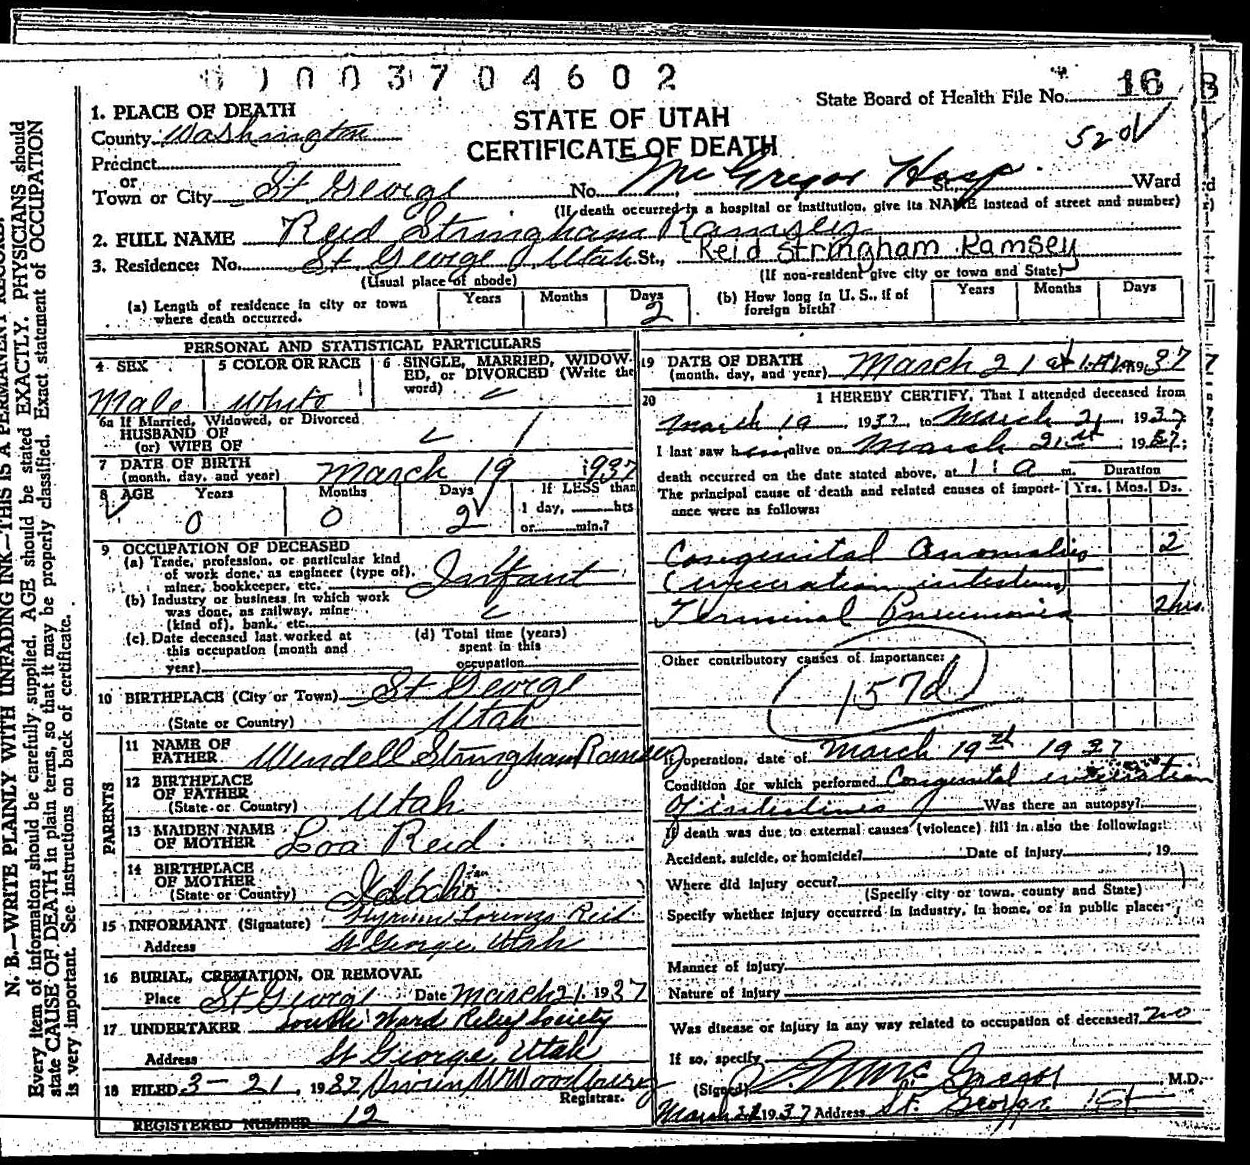 1003704602
State Board of Health File No. 16
5201
STATE OF UTAH
CERTIFICATE OF DEATH
1. PLACE OF DEATH
County Washington
Precinct
or
Town or City St George No. McGregor Hosp. St., Ward
(If death occurred in a hospital or institution, give its NAME instead of street and number)
2. FULL NAME Reid Stringham Ramsey
Reid Stringham Ramsey
3. Residence: No. St George Utah St.,
(Usual place of abode) (If non-resident give city or town and State)
(a) Length of residence in city or town where death occurred. Years Months Days 2
(b) How long in U. S., if of foreign birth? Years Months Days
PERSONAL AND STATISTICAL PARTICULARS
4 SEX Male
5 COLOR OR RACE White
6 SINGLE, MARRIED, WIDOWED, or DIVORCED (Write the word)
6a If Married, Widowed, or Divorced
HUSBAND OF
(or) WIFE OF
7 DATE OF BIRTH
(month, day, and year) March 19 1937
8 AGE Years 0 Months 0 Days 2
If LESS than
1 day, hrs
or min.?
9 OCCUPATION OF DECEASED
(a) Trade, profession, or particular kind
of work done, as engineer (type of),
miner, bookkeeper, etc. Infant
(b) Industry or business in which work
was done, as railway, mine
(kind of), bank, etc.
(c) Date deceased last worked at
this occupation (month and
year)
(d) Total time (years)
spent in this
occupation
10 BIRTHPLACE (City or Town) St George
(State or Country) Utah
PARENTS
11 NAME OF
FATHER Wendell Stringham Ramsey
12 BIRTHPLACE
OF FATHER
(State or Country) Utah
13 MAIDEN NAME
OF MOTHER Loa Reid
14 BIRTHPLACE
OF MOTHER
(State or Country) Idaho
15 INFORMANT (Signature) Hyrum Lorenzo Reid
Address St George, Utah
16 BURIAL, CREMATION, OR REMOVAL
Place St George Date March 21, 1937
17 UNDERTAKER South Ward Relief Society
Address St George, Utah
18 FILED 3-21, 1937 Woodbury
Registrar.
REGISTERED NUMBER 12
19 DATE OF DEATH
(month, day, and year) March 21 at 1:A.M. 1937
20 I HEREBY CERTIFY, That I attended deceased from
March 19, 1937, to March 21, 1937
I last saw him alive on March 21st, 1937;
death occurred on the date stated above, at 1: a m.
The principal cause of death and related causes of importance were as follows:
Duration
Yrs. Mos. Ds.
Congenital anomalies 2
intestines)
Terminal Pneumonia 2 hrs.
Other contributory causes of importance:
157d
If operation, date of March 19th 1937
Condition for which performed Congenital
of intestines Was there an autopsy?
If death was due to external causes (violence) fill in also the following:
Accident, suicide, or homicide? Date of injury 19
Where did injury occur?
(Specify city or town, county and State)
Specify whether injury occurred in industry, in home, or in public place:
Manner of injury
Nature of injury
Was disease or injury in any way related to occupation of deceased? no
If so, specify
(Signed) McGregor, M.D.
March 1937 Address St. George
N. B.—WRITE PLAINLY WITH UNFADING INK—THIS IS A PERMANENT RECORD.
Every item of information should be carefully supplied. AGE should be stated EXACTLY. PHYSICIANS should
state CAUSE OF DEATH in plain terms, so that it may be properly classified. Exact statement of OCCUPATION
is very important. See instructions on back of certificate.